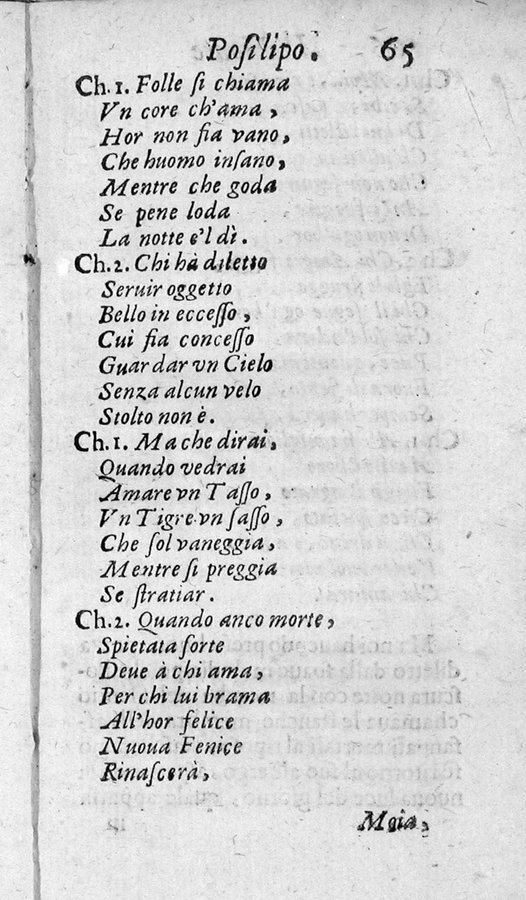 Poſilipo. 65
Ch.1. Folle ſi chiama
Vn core ch'ama,
Hor non ſia vano,
Che huomo inſano,
Mentre che goda
Se pene loda
La notte e'l dì.
Ch.2. Chi hà diletto
Seruir oggetto
Bello in ecceſſo,
Cui fia conceſſo
Guardar vn Cielo
Senza alcun velo
Stolto non è.
Ch.1. Ma che dirai,
Quando vedrai
Amare vn Taſſo,
Vn Tigre vn ſaſſo,
Che ſol vaneggia,
Mentre ſi preggia
Se ſtratiar.
Ch.2. Quando anco morte,
Spietata ſorte
Deue à chi ama,
Per chi lui brama
All'hor felice
Nuoua Fenice
Rinaſcerà,